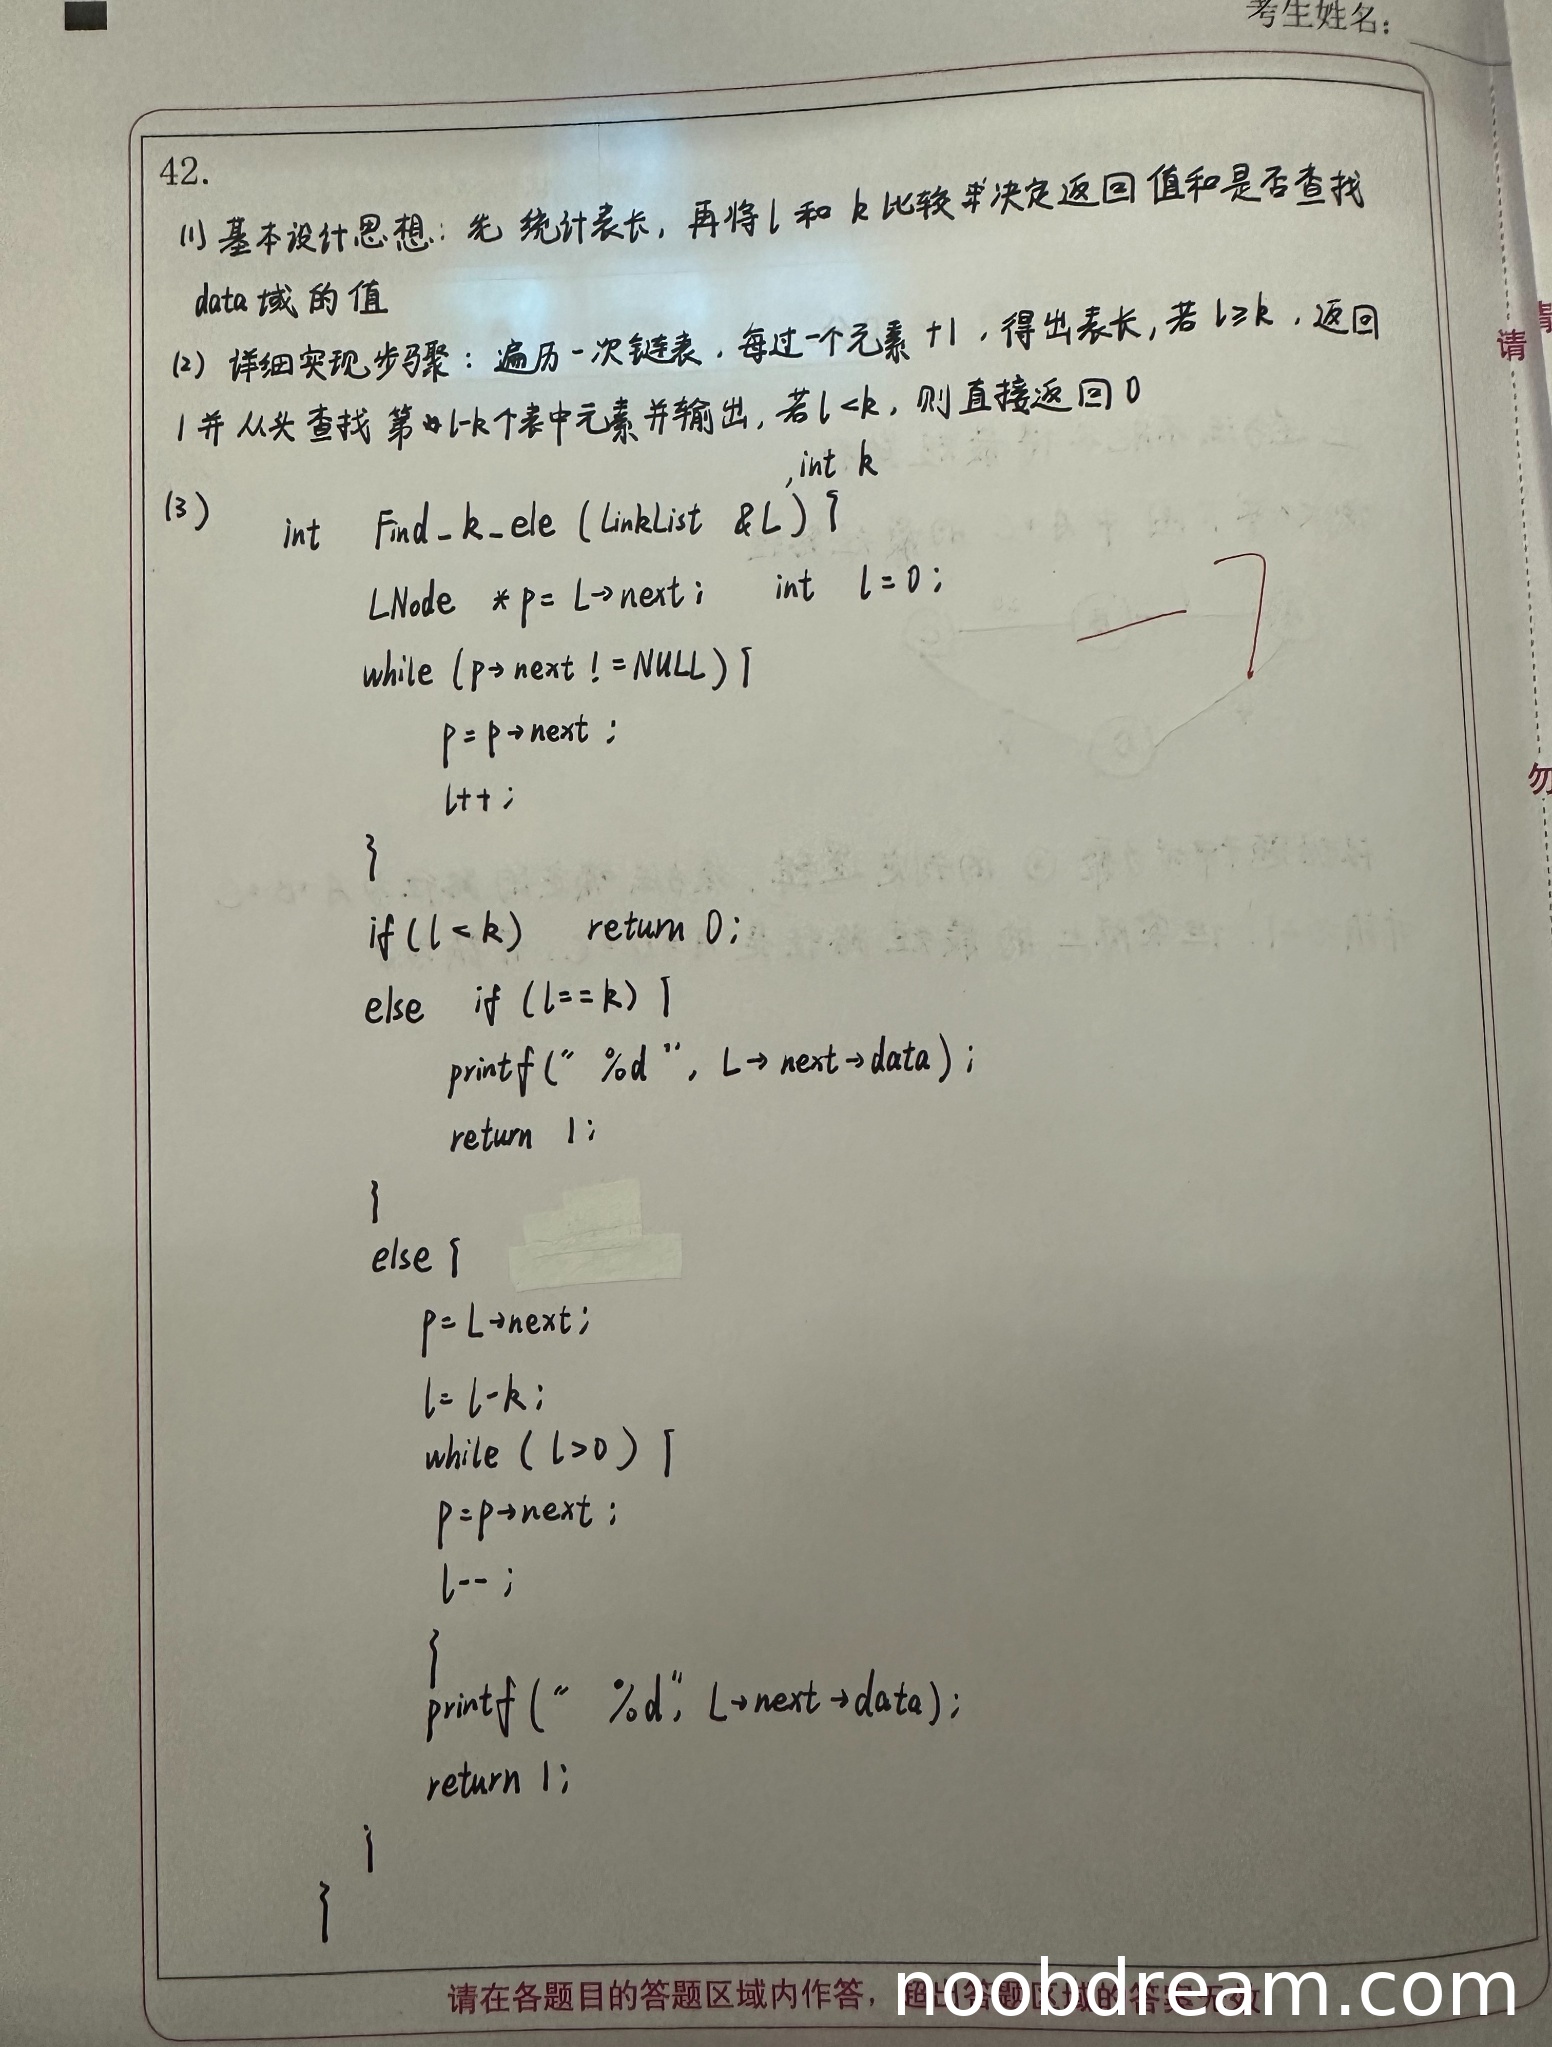 考生姓名:
42.
(1) 基本设计思想: 先统计表长, 再将 l 和 k 比较来决定返回值和是否查找
data域的值
(2) 详细实现步骤: 遍历一次链表, 每过一个元素 +1, 得出表长, 若 l≥k, 返回
1 并从头查找第 l-k个表中元素并输出, 若 l<k, 则直接返回0
, int k
(3) int Find_k_ele (LinkList &L) {
LNode *p= L→next; int l=0;
while (p→next != NULL) {
p= p→next ;
l++ ;
}
if (l < k) return 0;
else if (l==k) {
printf(" %d ", L→next→data) ;
return 1;
}
else {
p= L→next;
l= l-k;
while ( l>0 ) {
p=p→next ;
l-- ;
}
printf(" %d", L→next→data);
return 1;
}
}
-7
请
勿
请在各题目的答题区域内作答, 超出答题区域的答案无效
noobdream.com